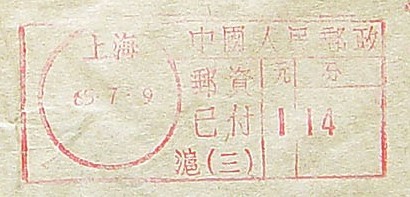 上海
85.7.9
中國人民郵政
郵資 元 分
已付 1 14
滬(三)